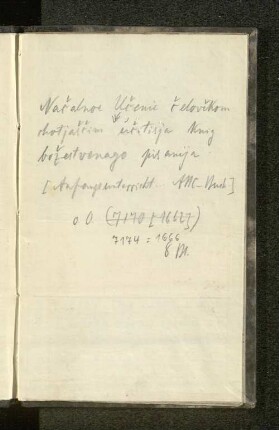 Načalnoe Učenie čelověkom
chotjaščim učitisja knig
božestvenago pisanija
[Anfangsunterricht. ABC-Buch]
o. O. (7170 [1662])
7174 = 1666
8 Bl.